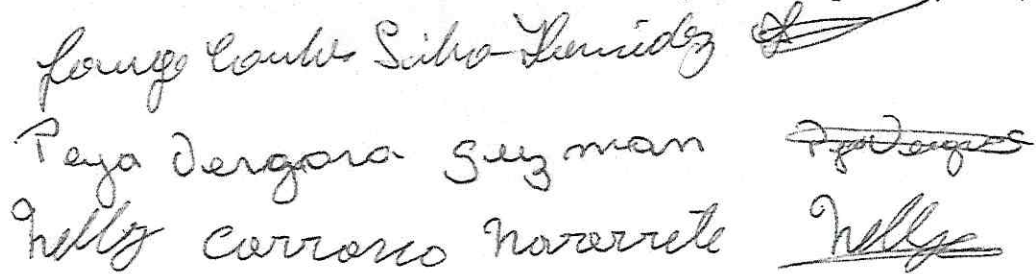 Jorge Carlos Silva Hernández
Peya Vergara Guzman PyaVergara
Nelly Carrasco Navarrete Nelly